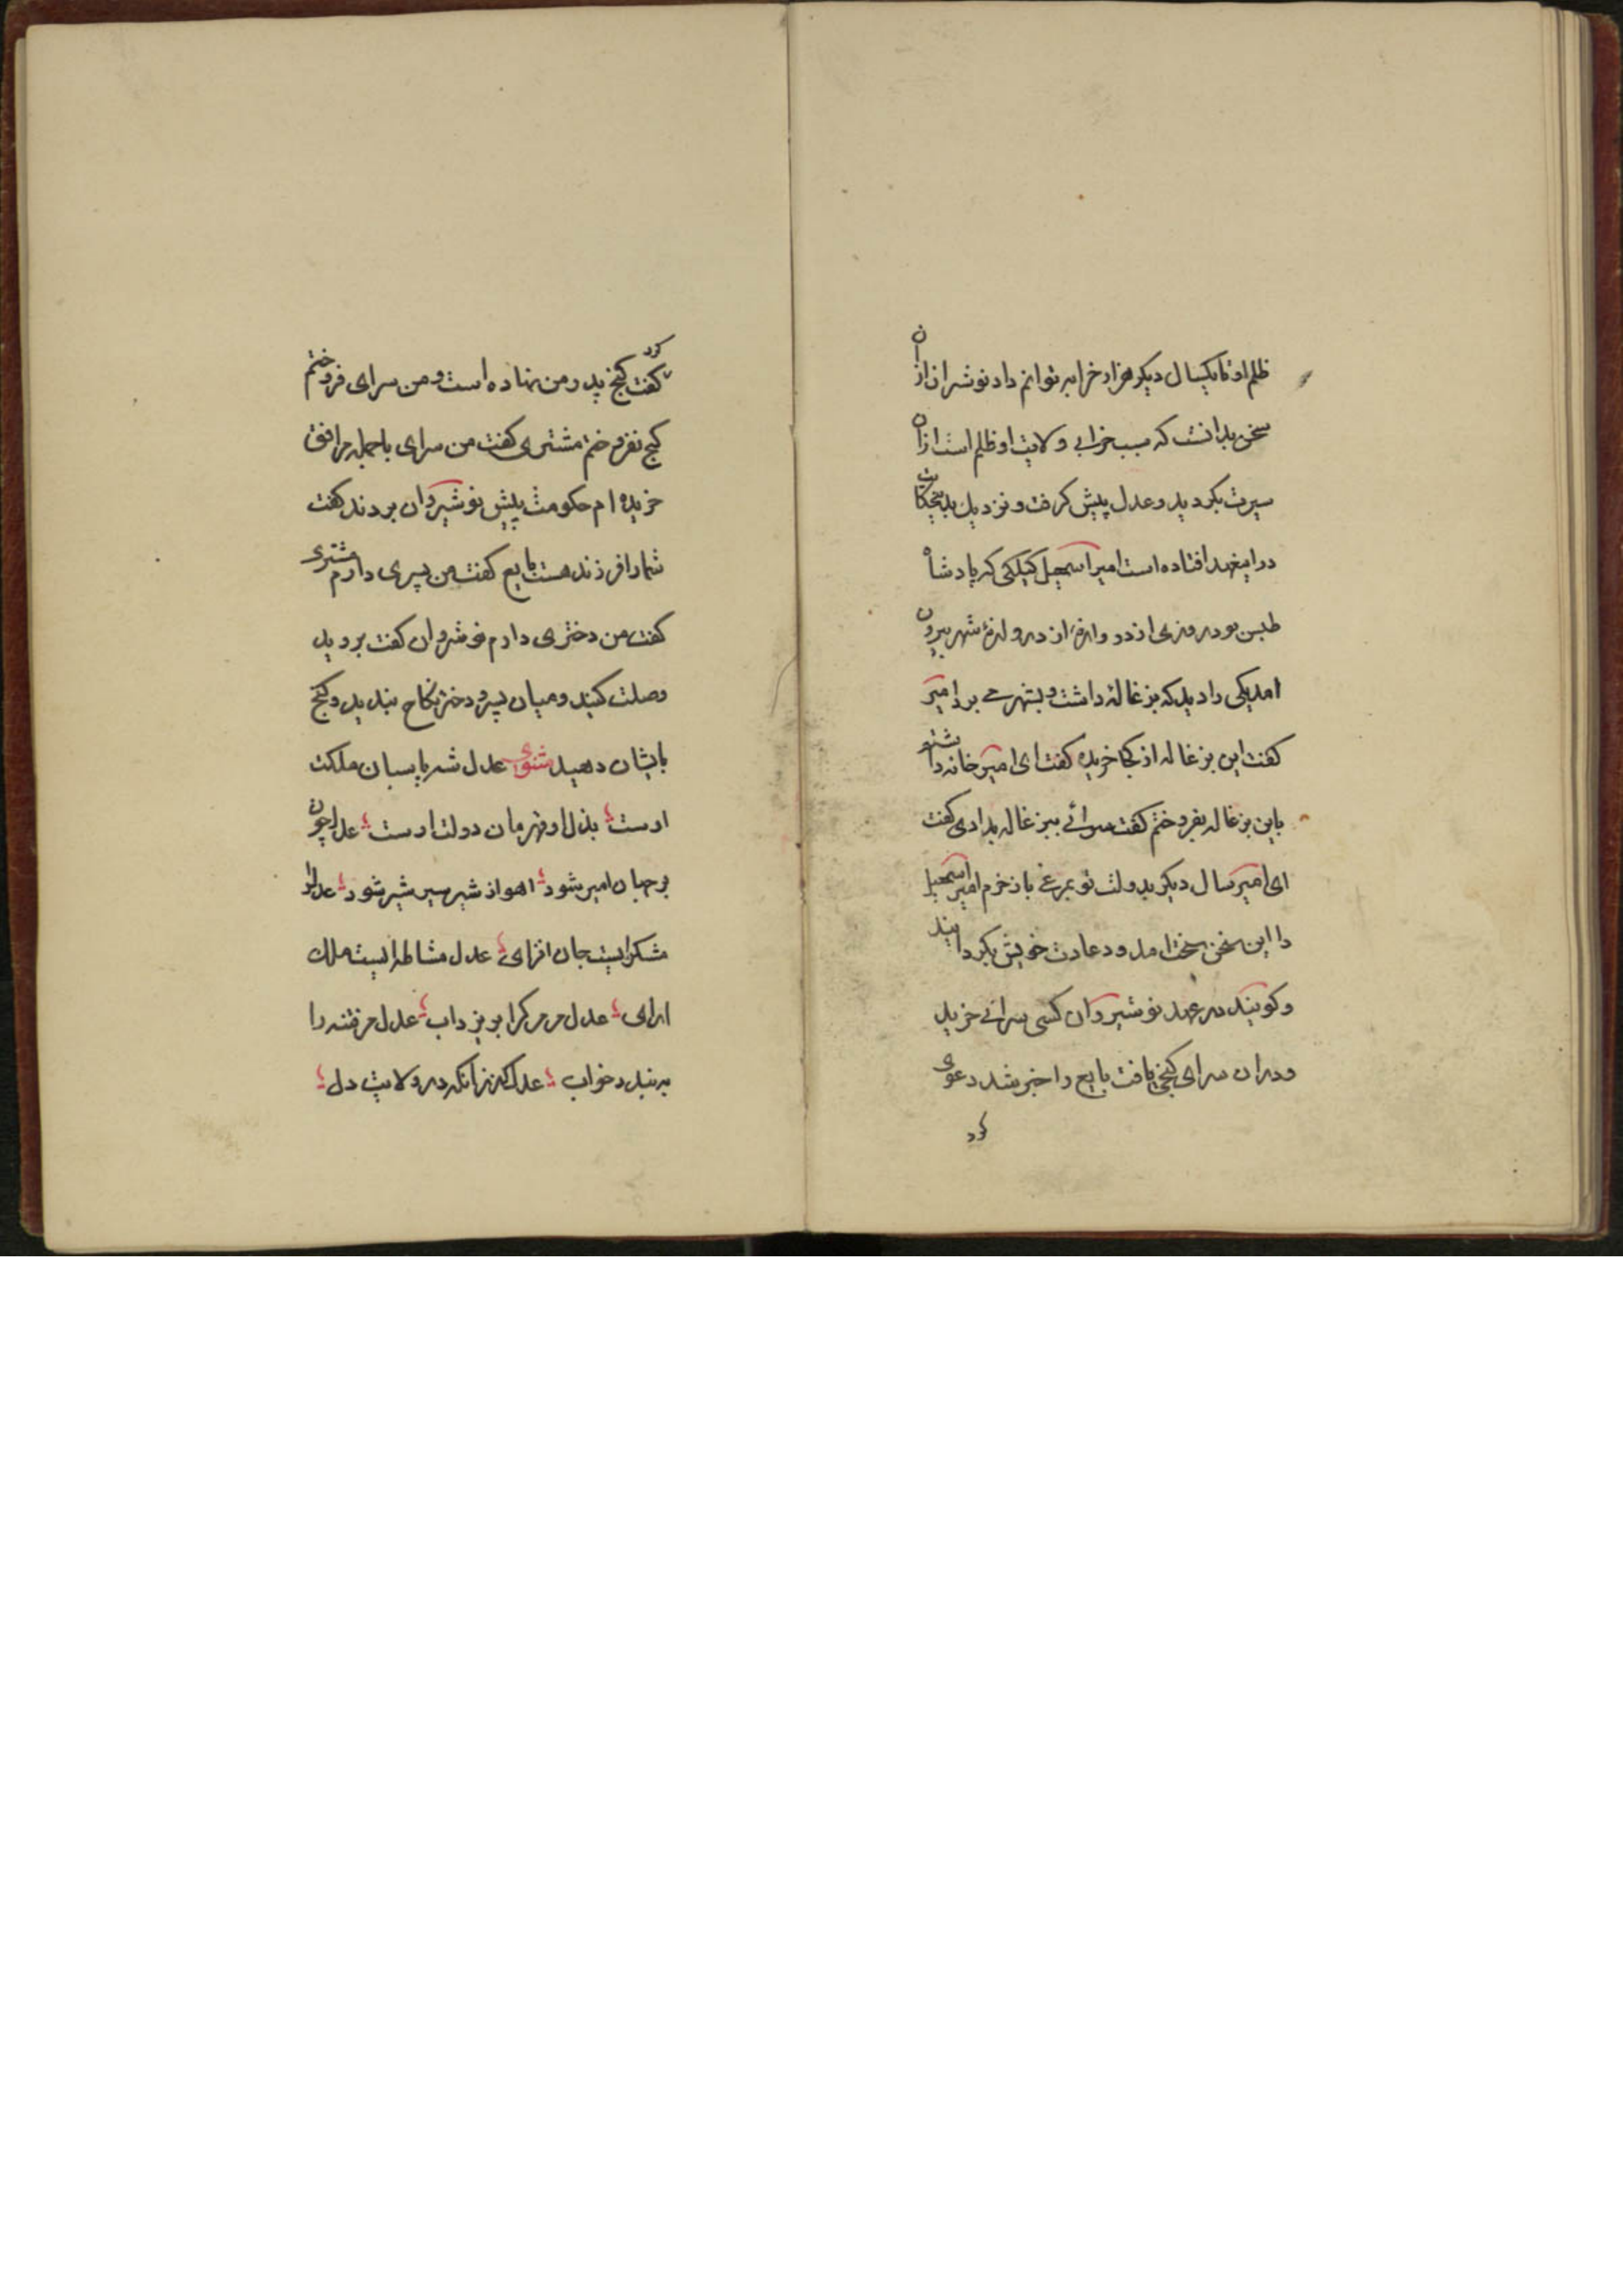 ظلم او تا یکسال دیکر هزار خرابه توانم داد نوشروان ازان
سخن بدانست که سبب خرابی ولایت او ظلم است ازان
سیرت بکردید و عدل پیش کرفت و نزدیک بدین حکایت
در این عهد افتاده است امیر اسمعیل کیلکی که پادشاه
طبس بود روزی از در وازۀ از دروازۀ شهر بیرون
امد یکی را دید که بزغالۀ داشت و بشهر می برد امیر
کفت این بزغاله از کجا خریدۀ کفت ای امیر خانه داشتم
باین بزغاله بفروختم کفت سرائی ببزغاله بدادی کفت
ای امیر سال دیکر بدولت تو بمرغی باز خرم امیر اسمعیل
را این سخن سخت امد و عادت خویش بکردانید
و کویند در عهد نوشیروان کسی سرائی خرید
و دران سرای کنجی یافت بایع را خبر شد دعوی
کرد
کرد
کفت کنج پدر من نهاده است و من سرای فروختم
کنج نفروختم مشتری کفت من سرای با جمله مرافق
خریده ام حکومت پیش نوشیروان بردند کفت
شمارا فرزند هست بایع کفت من پسری دارم مشتری
کفت من دختری دارم نوشروان کفت بروید
وصلت کنید و میان پسر و دختر نکاح بندید و کنج
بایشان دهید مثنوی عدل شه پاسبان ملکت
اوست ؛ بذل او قهرمان دولت اوست ؛ عدل چون
بر جهان امیر شود ؛ اهو از شیر سیر شیر شود ؛ عدل او
مشکرایست جان افزای ؛ عدل مشاطه ایست ملک
ارای ؛ عدل مر مرکرا بریزد اب ؛ عدل مر فتنه را
به بندد خواب ؛ عدل کن زانکه در ولایت دل ؛